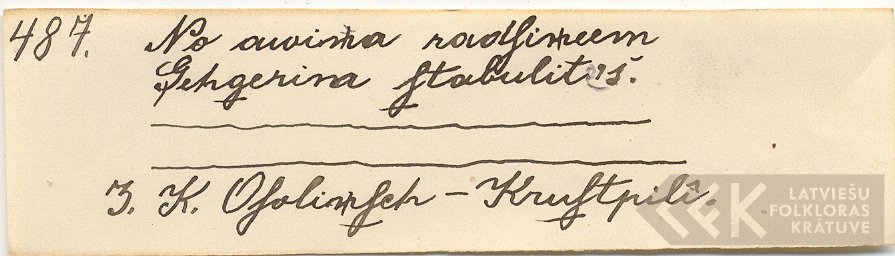 487. No awiņa radſiņeem
Jehgerina ſtabulites.
J. K. Oſoliņſch – Kruſtpilî.
LATVIEŠU
FOLKLORAS
KRĀTUVE
LFK